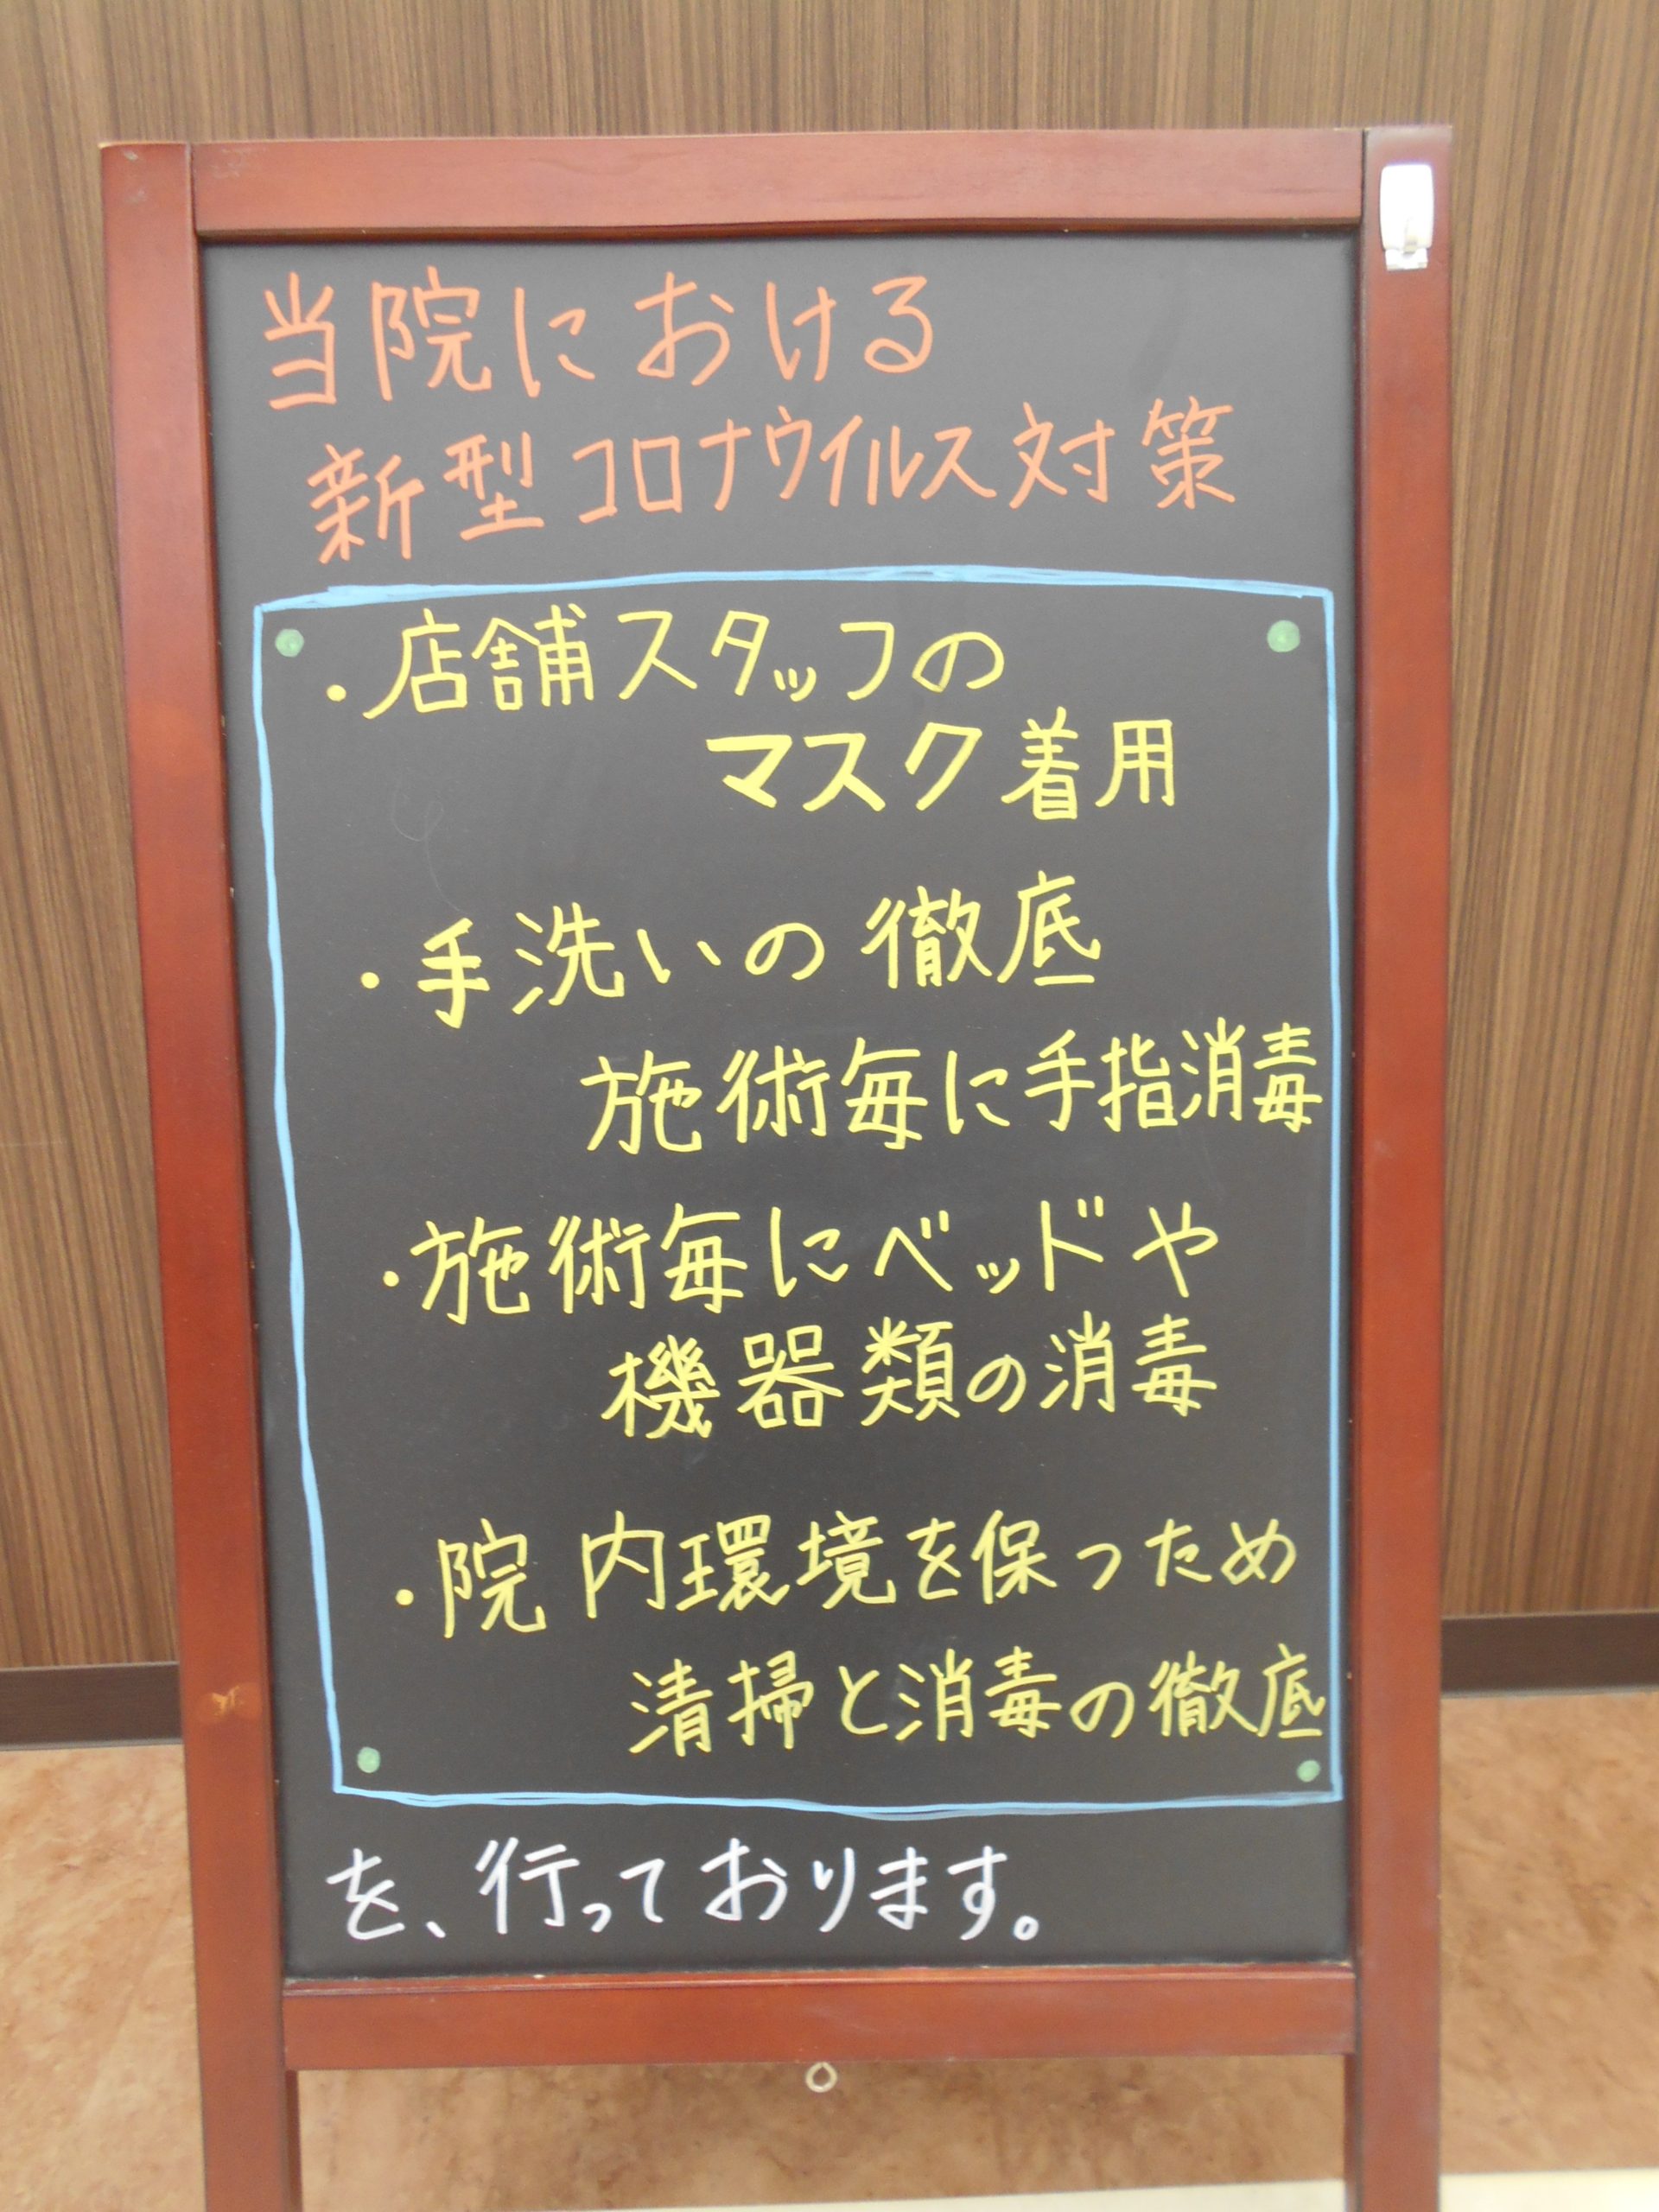 当院における
新型コロナウイルス対策
・店舗スタッフの
マスク着用
・手洗いの徹底
施術毎に手指消毒
・施術毎にベッドや
機器類の消毒
・院内環境を保つため
清掃と消毒の徹底
を、行っております。